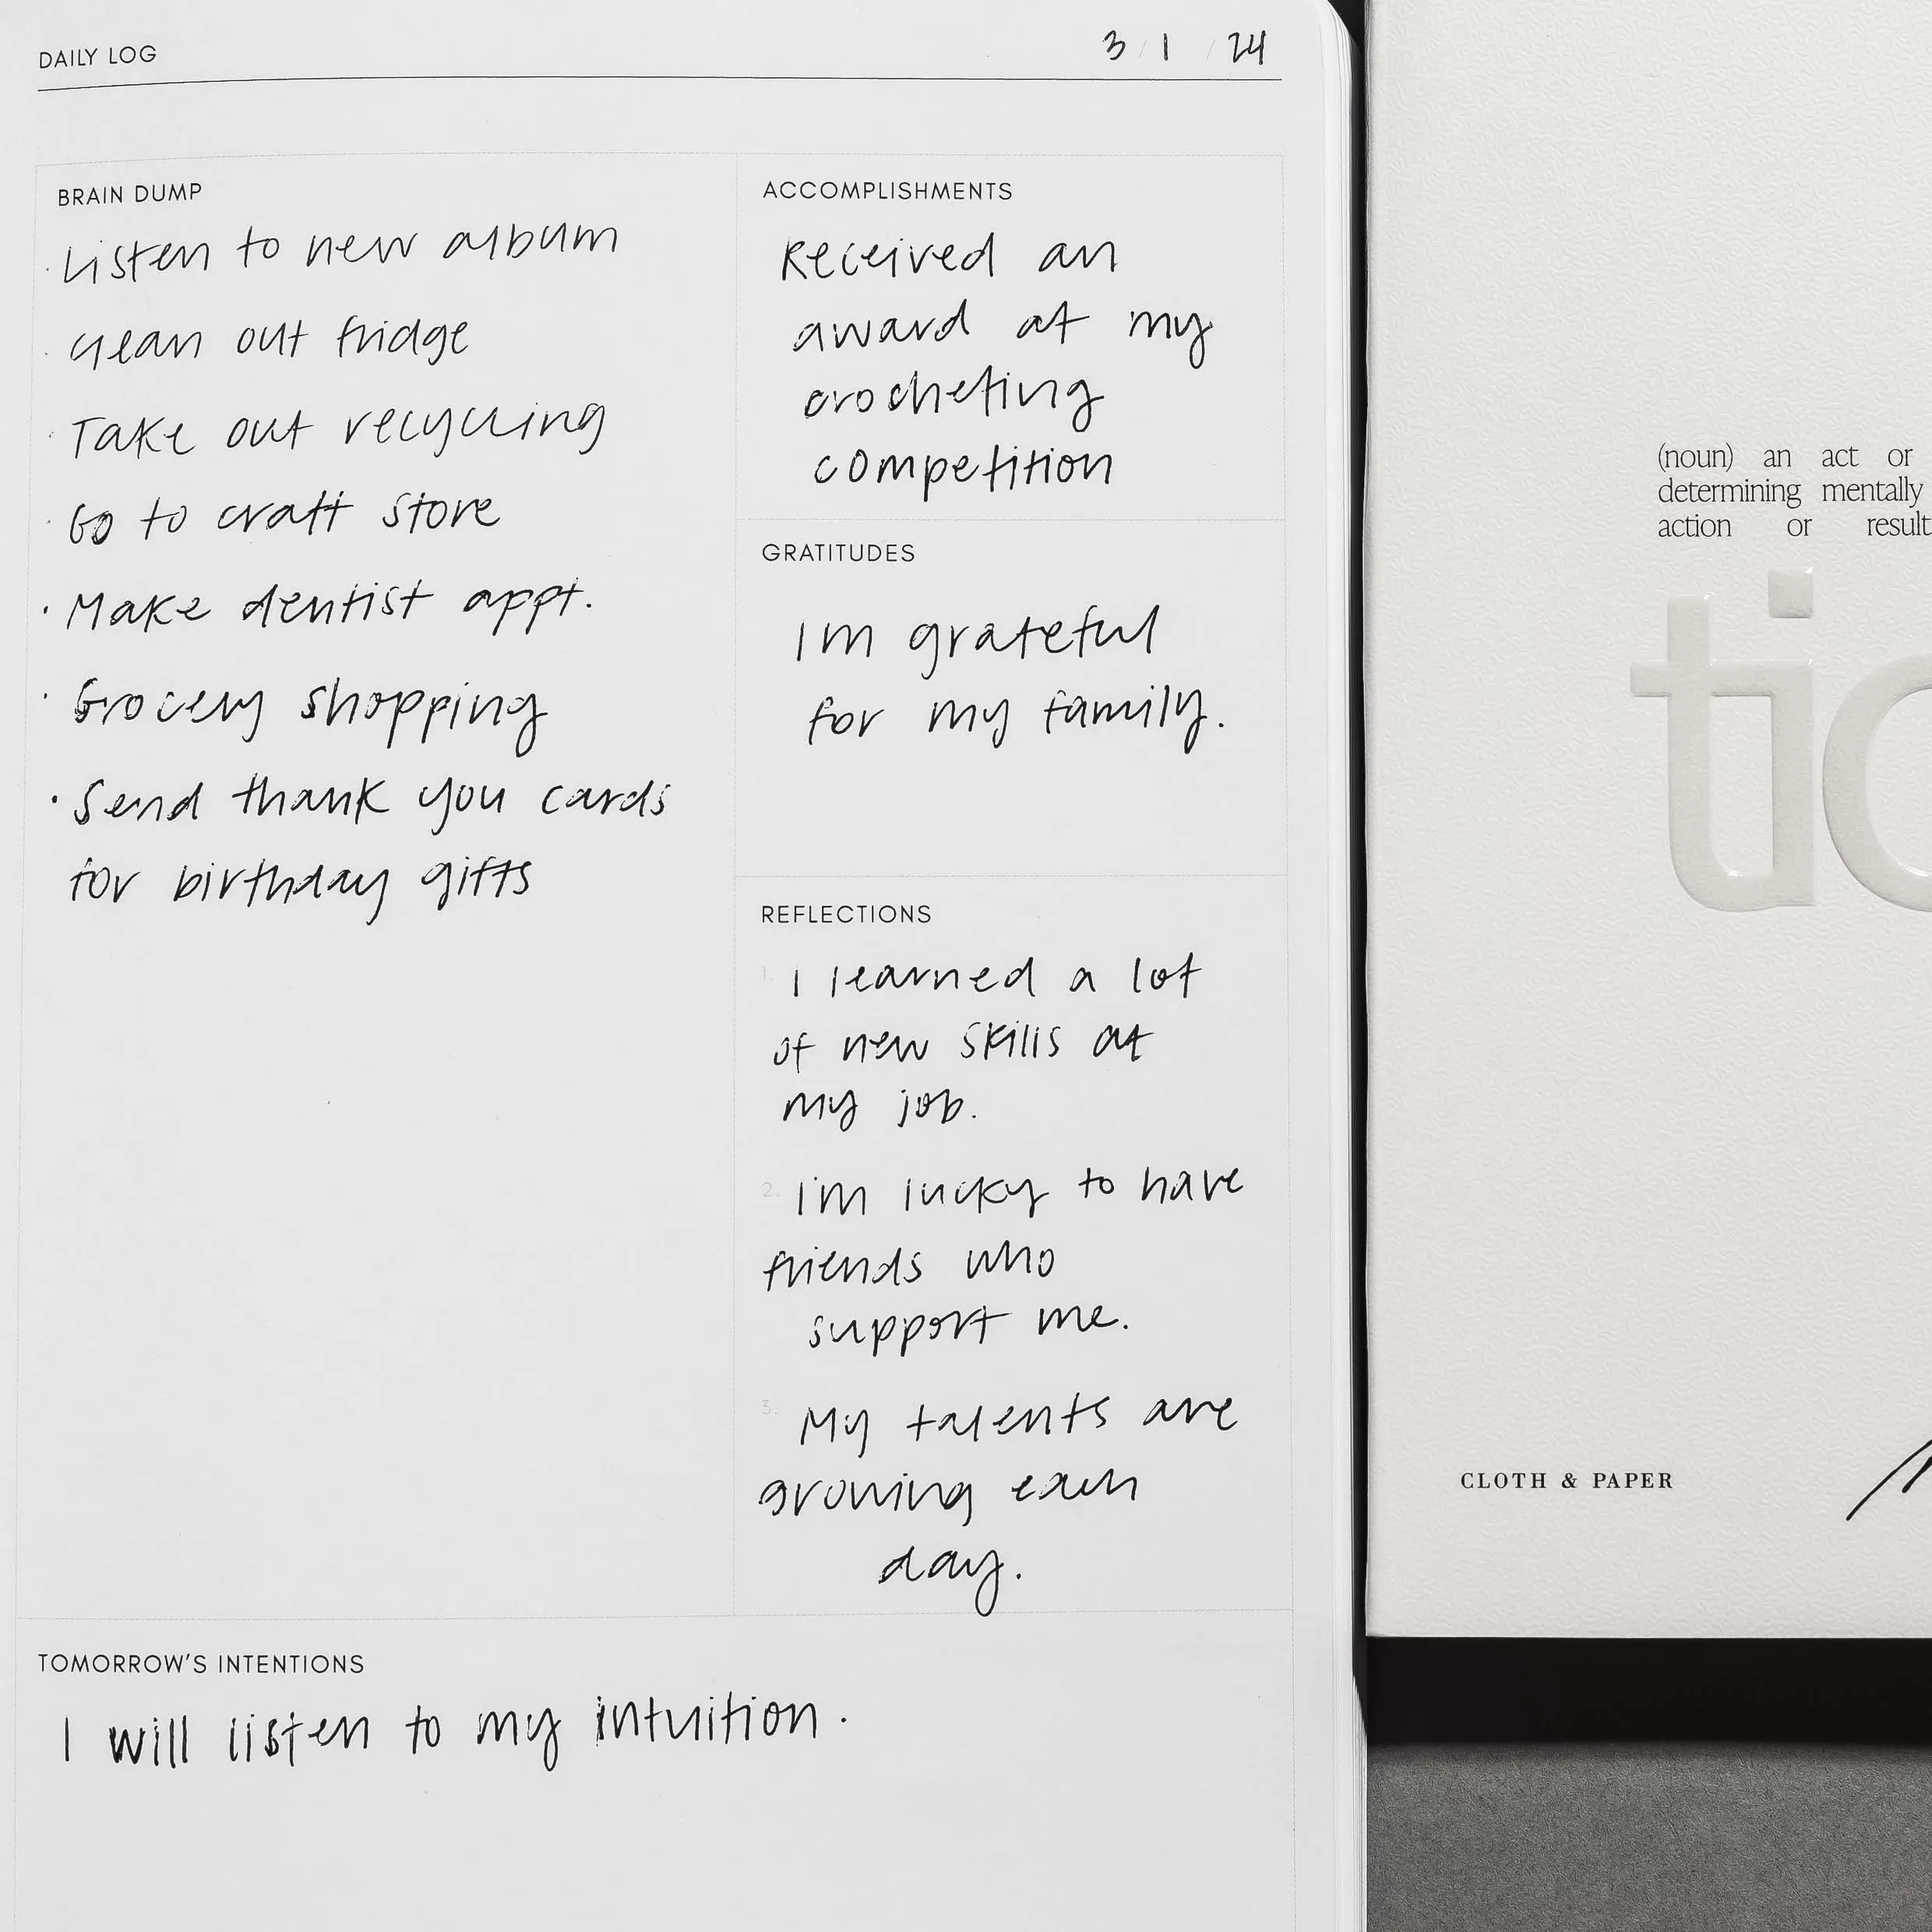 DAILY LOG
3 / 1 / 24
BRAIN DUMP
· Listen to new album
· Clean out fridge
· Take out recycling
· Go to craft store
· Make dentist appt.
· Grocery shopping
· Send thank you cards
for birthday gifts
ACCOMPLISHMENTS
Received an
award at my
crocheting
competition
GRATITUDES
Im grateful
for my family.
REFLECTIONS
1. I learned a lot
of new skills at
my job.
2. I'm lucky to have
friends who
support me.
3. My talents are
growing each
day.
TOMORROW'S INTENTIONS
I will listen to my intuition.
(noun) an act or
determining mentally
action or result
tio
CLOTH & PAPER